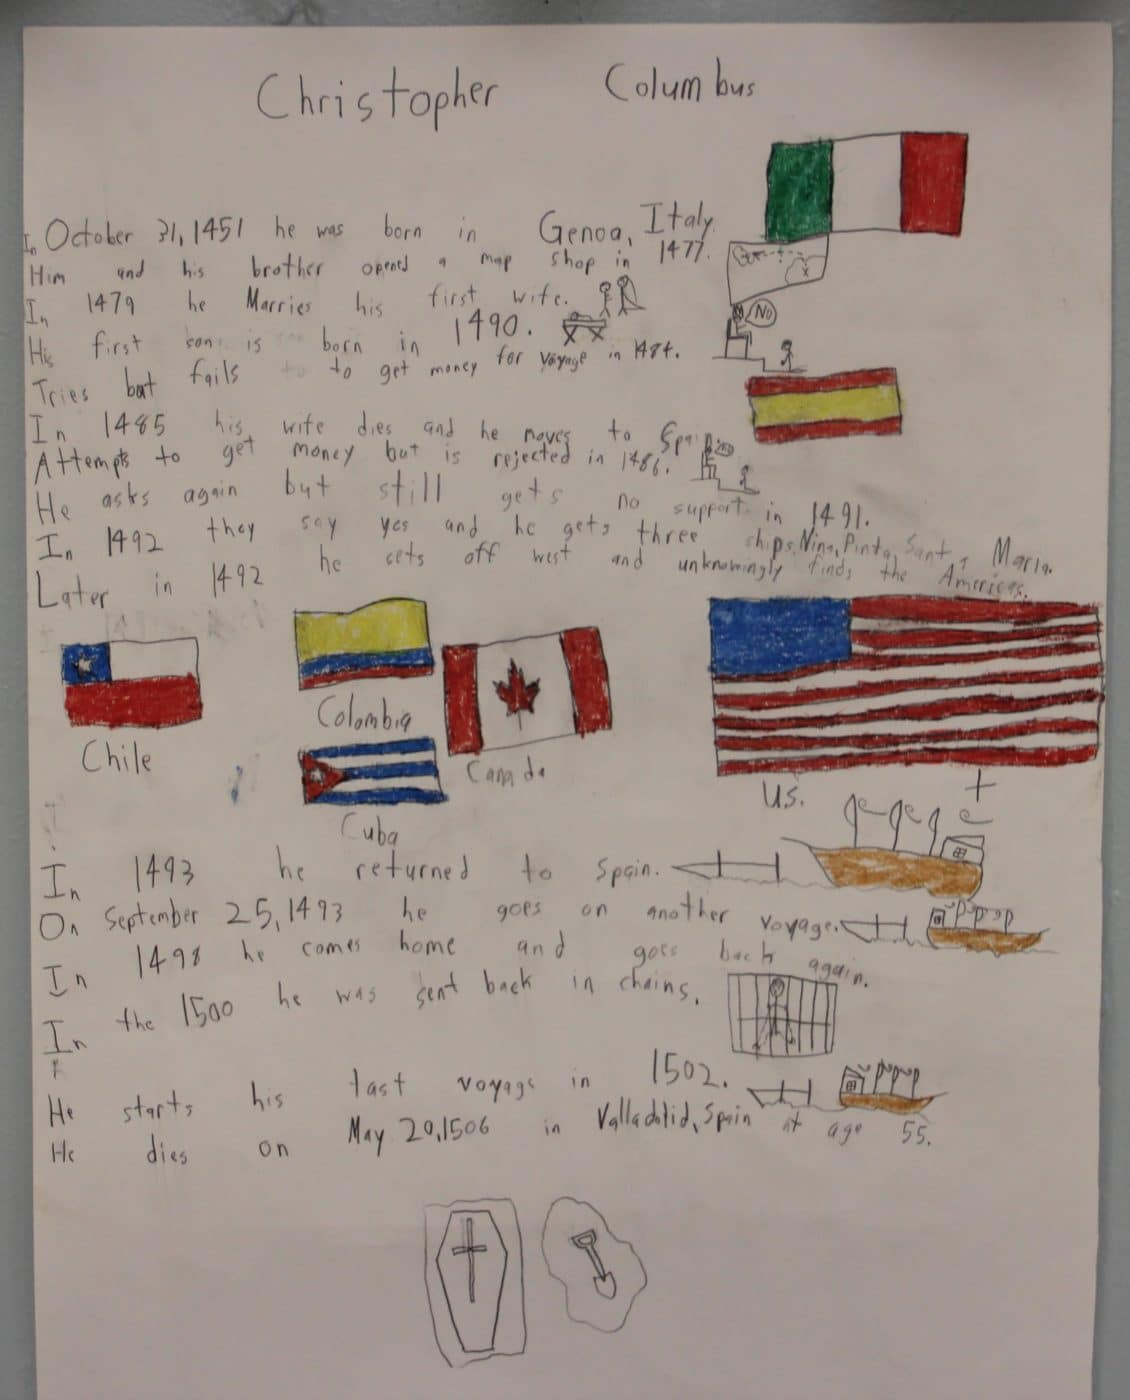 Christopher Columbus
In October 31, 1451 he was born in Genoa, Italy.
Him and his brother opened a map shop in 1477.
In 1479 he Marries his first wife.
His first son is born in 1490.
No
Tries but fails to to get money for voyage in 1484.
In 1485 his wife dies and he moves to Spain.
Attempts to get money but is rejected in 1486.
He asks again but still gets no support in 1491.
In 1492 they say yes and he gets three ships, Nina, Pinta, Santa Maria.
Later in 1492 he sets off west and unknowingly finds the Americas.
Chile
Colombia
Canada
U.S.
Cuba
In 1493 he returned to Spain.
On September 25, 1493 he goes on another voyage.
In 1498 he comes home and goes back again.
In the 1500 he was sent back in chains.
He starts his last voyage in 1502.
He dies on May 20, 1506 in Valladolid, Spain at age 55.